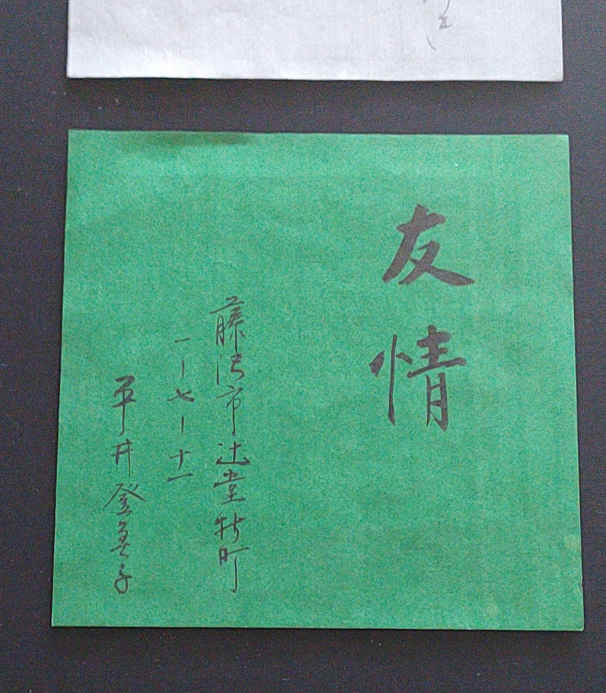 友情
藤沢市辻堂新町
一ー七ー十一
平井登美子